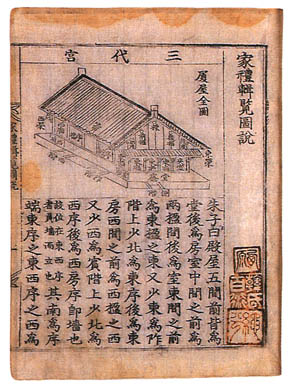 家禮輯覽圖說
三代宮
廈屋全圖
朱子曰殿屋五間前皆爲
堂後爲房室中間之前爲
兩楹間後爲室東間之前
爲東楹之東又少東爲阼
階上少北爲東序後爲東
房西間之前爲西楹之西
又少西爲賓階上少北爲
西序後爲西房序即墻也
設位在東西序
者負墻而立也其南爲序
端東序之東西序之西爲